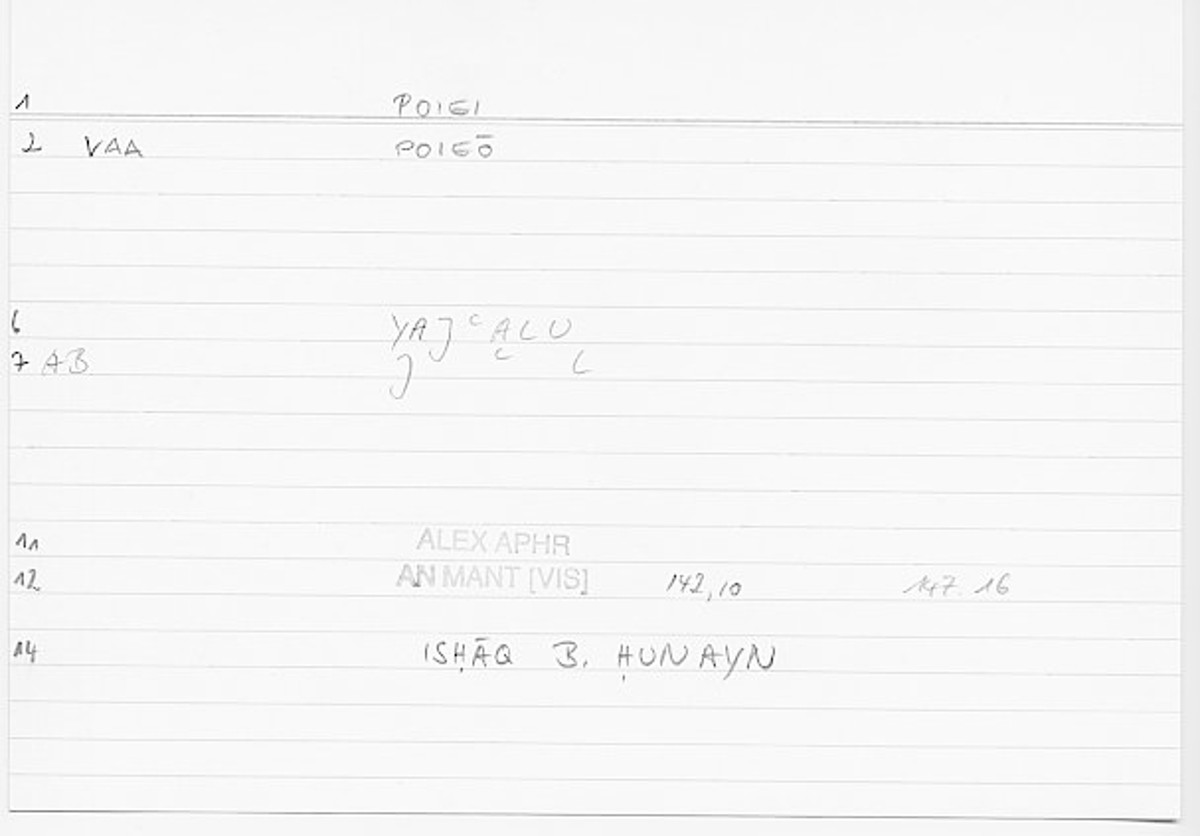 1 POIEI
2 VAA POIEŌ
6 YAJ ͨ ALU
7 AB J ͨ L
11 ALEX APHR
12 AN MANT [VIS] 142,10 147.16
14 ISḤĀQ B. ḤUNAYN